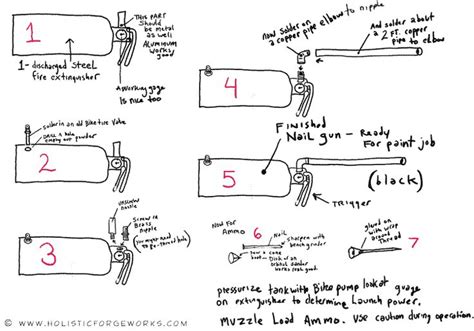 1
1- discharged Steel
fire extinguisher
This PART
Should
be metal
as well
Aluminum
works
good
A working gage
is nice too
2
Solder in an old Bike tire Valve
3
unscrew
nozzle
Screw in
Brass
Nipple
4
now Solder on
a copper pipe elbow to nipple
And solder about
a 2 FT. copper
pipe to elbow
5
Finished
Nail gun - Ready
For paint job
(black)
Trigger
Now For
Ammo
6
Nail
Sharpen with
bench grinder
7
glued on
with wrap
around
Thread
pressurize tank with Bike pump look at guage
on extinguisher to determine Launch power.
Muzzle Load Ammo. Use caution during operation.
© WWW.HOLISTICFORGEWORKS.COM